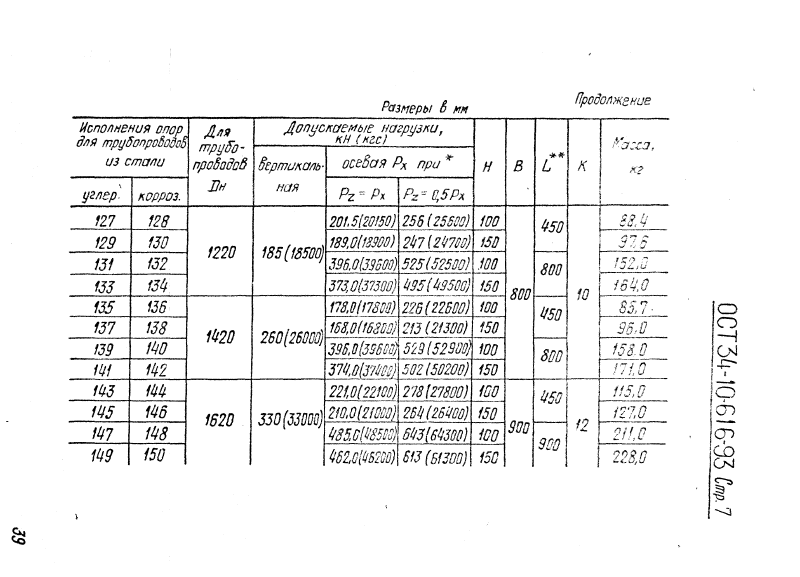 Продолжение
Размеры в мм
Исполнения опор для трубопроводов из стали | Для трубопроводов Dн | Допускаемые нагрузки, кН (кгс) | H | B | L** | K | Масса, кг
углер. | корроз. | вертикальная | осевая Px при *
Pz = Px | Pz = 0,5Px
127 | 128 | 1220 | 185 (18500) | 201,5(20150) | 256 (25600) | 100 | 800 | 450 | 10 | 88,4
129 | 130 | 189,0(18900) | 247 (24700) | 150 | 97,6
131 | 132 | 396,0(39600) | 525 (52500) | 100 | 800 | 152,0
133 | 134 | 373,0(37300) | 495 (49500) | 150 | 164,0
135 | 136 | 1420 | 260(26000) | 178,0(17800) | 226 (22600) | 100 | 450 | 85,7
137 | 138 | 168,0(16800) | 213 (21300) | 150 | 96,0
139 | 140 | 396,0(39600) | 529 (52900) | 100 | 800 | 158,0
141 | 142 | 374,0(37400) | 502 (50200) | 150 | 171,0
143 | 144 | 1620 | 330(33000) | 221,0(22100) | 278 (27800) | 100 | 900 | 450 | 12 | 115,0
145 | 146 | 210,0(21000) | 264 (26400) | 150 | 127,0
147 | 148 | 485,0(48500) | 643(64300) | 100 | 900 | 211,0
149 | 150 | 462,0(46200) | 613 (61300) | 150 | 228,0
ОСТ 34-10-616-93 Стр. 7
39